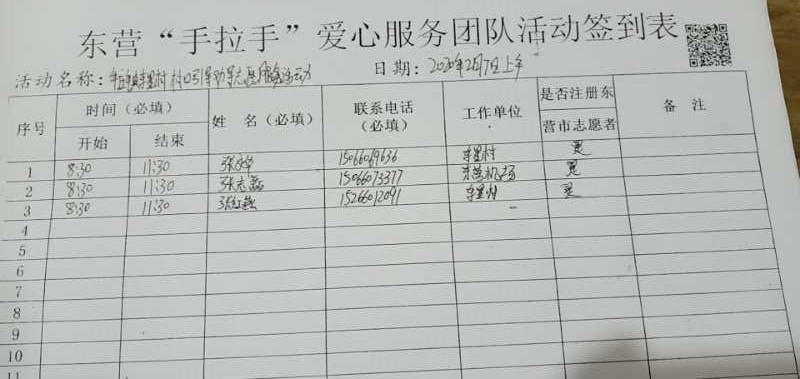 东营“手拉手”爱心服务团队活动签到表
活动名称： 李屋村村口引导劝导志愿服务活动 日期：2020年2月7日上午
序号 时间（必填） 姓 名（必填） 联系电话（必填） 工作单位 是否注册东营市志愿者 备 注
开始 结束
1 8:30 11:30 15066069636 李屋村 是
2 8:30 11:30 张志磊 15066073377 是
3 8:30 11:30 15266012091 李屋村 是
4
5
6
7
8
9
10
11